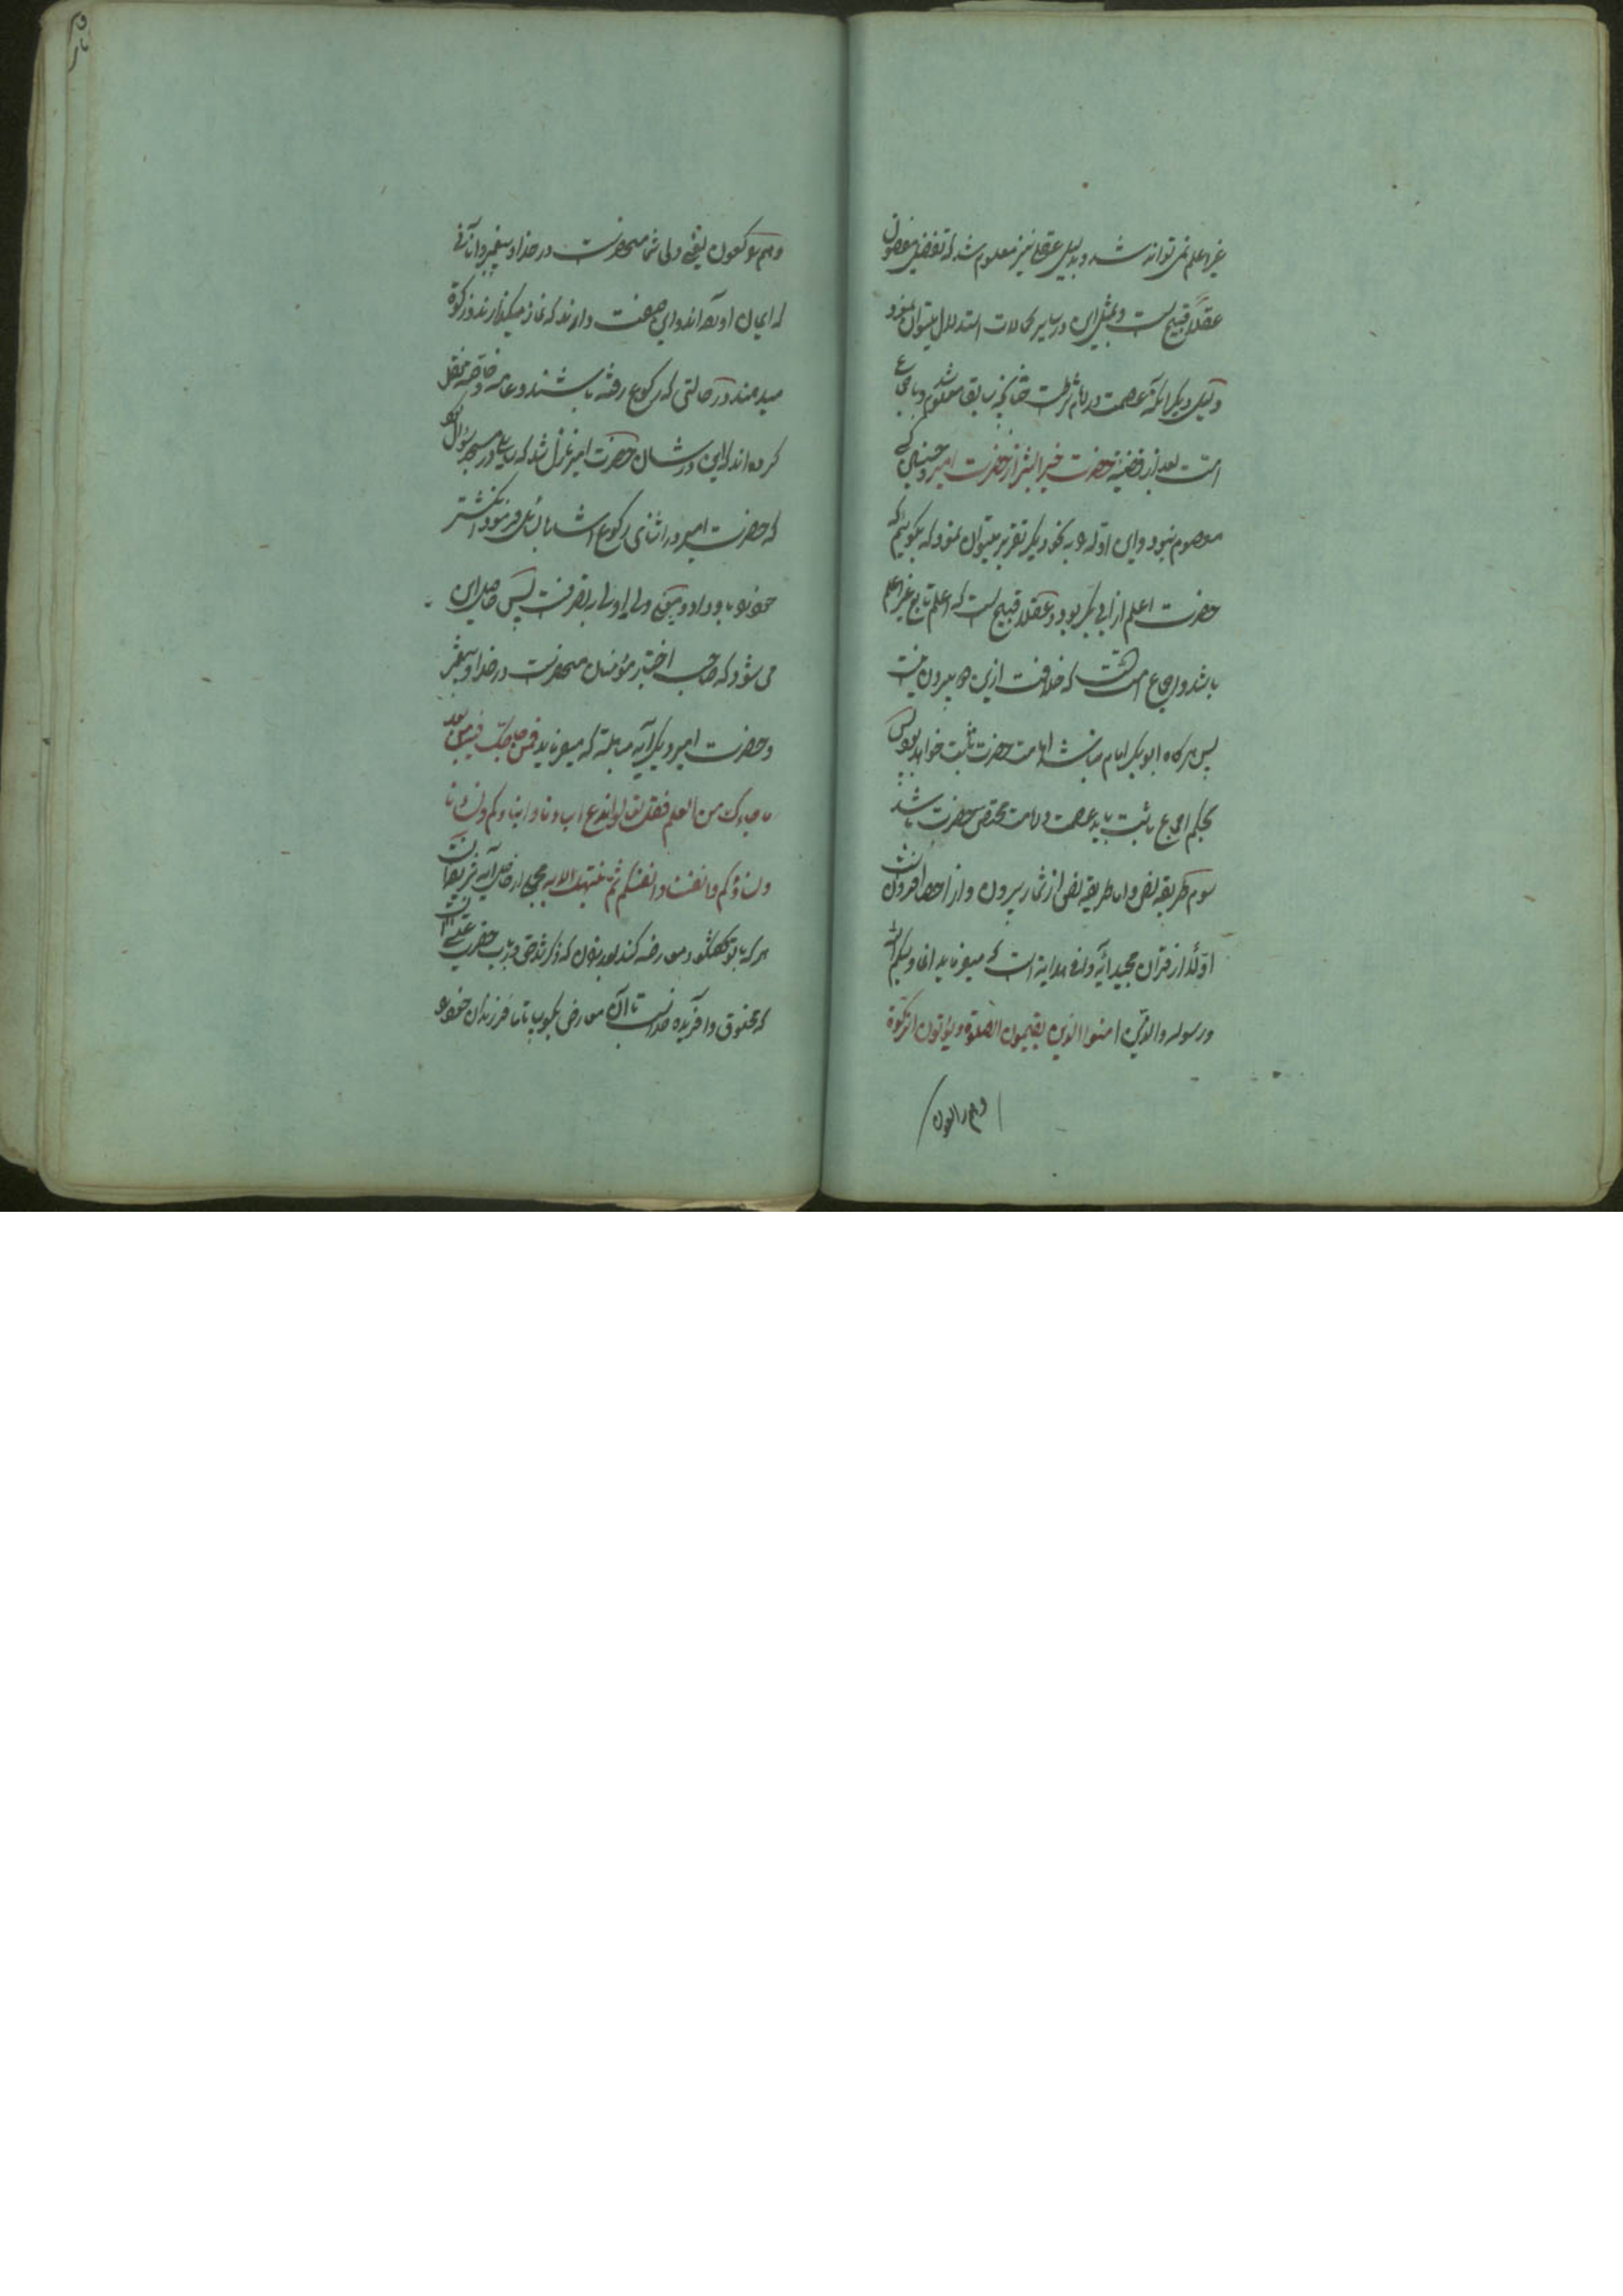 غیر اعلم نمی تواند شد و بدلیل عقلی نیز معلوم شد که تفضیل مفضول
عقلا قبیح است و بمثل این در سایر کمالات استدلال میتوان نمود
دلیل دیگر آنکه عصمت در امام شرطست چنانچه سابق معلوم شد و باجماع
امت بعد از حضرت خیر البشر از حضرت امیر و حسنین کسی
معصوم نبود و این ادله را به نحو دیگر تقریر میتوان نمود که بگوئیم که
حضرت اعلم از ابی بکر بود و عقلا قبیح است که اعلم تابع غیر اعلم
باشد و اجماع امت است که خلافت ازین دو بیرون نیست
پس هرگاه ابو بکر امام نباشد امامت حضرت ثابت خواهد بود پس
بحکم اجماع ثابت باید عصمت و امامت مختص حضرت باشد
سوم طریقه نص و اما طریقه نص از شمار بیرون و از احصا افزونست
اولا از قرآن مجید آیه وافی هدایه است که میفرماید انما ولیکم الله
ورسوله والذین امنوا الذین یقیمون الصلوة ویؤتون الزکوة
وهم راکعون
وهم راکعون یعنی ولی شما منحصرست در خدا و پیغمبر و آنانی
که ایمان آورده اند و این صفت دارند که نماز میگذارند و زکوة
میدهند در حالتی که رکوع رفته باشند و عامه و خاصه نقل
کرده اند که این در شان حضرت امیر نازل شد که سایلی در مسجد سؤال نمود
که حضرت امیر در اثنای رکوع اشاره بسائل فرمود و انگشتر
خود را باو داد و معنی ولی اولی بتصرفست پس حاصل این
می شود که صاحب اختیار مؤمنان منحصرست در خدا و پیغمبر
و حضرت امیر دیگر آیه مباهله که میفرماید فمن حاجک فیه من بعد
ما جاءک من العلم فقل تعالوا ندع ابناءنا وابناءکم ونساءنا
ونساؤکم وانفسنا وانفسکم ثم نبتهل الایه مجملی از حاصل آیه شریفه آنست
هرکه با تو گفتگو و معارضه کند بعد ازین که ذکر شد حق در باب حضرت عیسی
که مخلوق و آفریده خداست با آن معارض بگو بیا تا ما فرزندان خود و